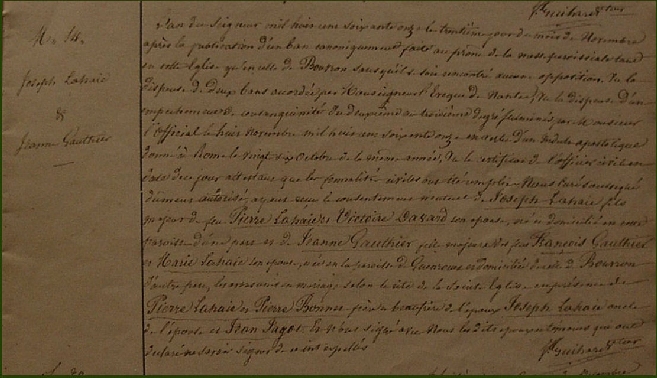 N. 34.
Joseph Lahaie
&
Jeanne Gaulthier
L'an du Seigneur mil huit cent soixante onze le treizième jour du mois de Novembre
après la publication d'un ban canoniquement faite au prône de la messe paroissiale tant
en cette Eglise qu'en celle de Bouvron sans qu'il se soit rencontré aucune opposition, Vu la
dispense de deux bans accordée par Monseigneur l'Evêque de Nantes, Vu la dispense d'un
empêchement de consanguinité du deuxième au troisième degré par Monsieur
l'Official le huit Novembre mil huit cent soixante onze en vertu d'un Indult apostolique
donné à Rome le vingt six Octobre de la même année, Vu le certificat de l'officier civil en
date de ce jour attestant que les formalités civiles ont été remplies Nous Curé soussigné
dûment autorisé, ayant reçu le consentement mutuel de Joseph Lahaie fils
majeur de feu Pierre Lahaie et Victoire Dazard son épouse, né et domicilié en cette
paroisse d'une part et de Jeanne Gaulthier fille majeure des feus François Gaulthier
et Marie Lahaie son épouse, née en la paroisse de et domiciliée à celle de Bouvron
d'autre part, les avons unis en mariage selon le rite de la Sainte Eglise en présence de
Pierre Lahaie et Pierre Bonnet frère et beau frère de l'époux Joseph Lahaie oncle
de l'épouse et Jean Pageot. Les tous signé avec Nous les dits époux témoins qui ont
déclaré ne savoir signer de ce interpellés
J. Guihard